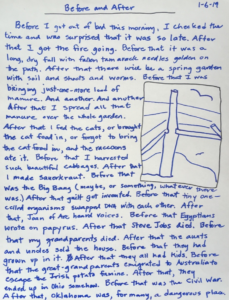 Before and After
1-6-19
Before I got out of bed this morning, I checked the
time and was surprised that it was so late. After
that I got the fire going. Before that it was a
long, dry fall with fallen tamarack needles golden on
the path. After that there will be a spring garden
with soil and shoots and worms. Before that I was
bringing just-one-more load of
manure. And another. And another
After that I spread all that
manure over the whole garden.
After that I fed the cats, or brought
the cat food in, or forgot to bring
the cat food in, and the raccoons
ate it. Before that I harvested
such beautiful cabbages. After that
I made Sauerkraut. Before that
was the Big Bang (maybe, or something, whatever there
was.) After that guilt got invented. Before that tiny one-
celled organisms swapped DNA with each other. After
that, Joan of Arc heard voices. Before that Egyptians
wrote on papyrus. After that Steve Jobs died. Before
that my grandparents died. After that the aunts
and uncles sold the house. Before that they had
grown up in it. After that they all had kids. Before
that the great-grandparents emigrated to
escape the Irish potato famine. After that, they
ended up in this somehow. Before that was the Civil War.
After that, Oklahoma was, for many, a dangerous place.